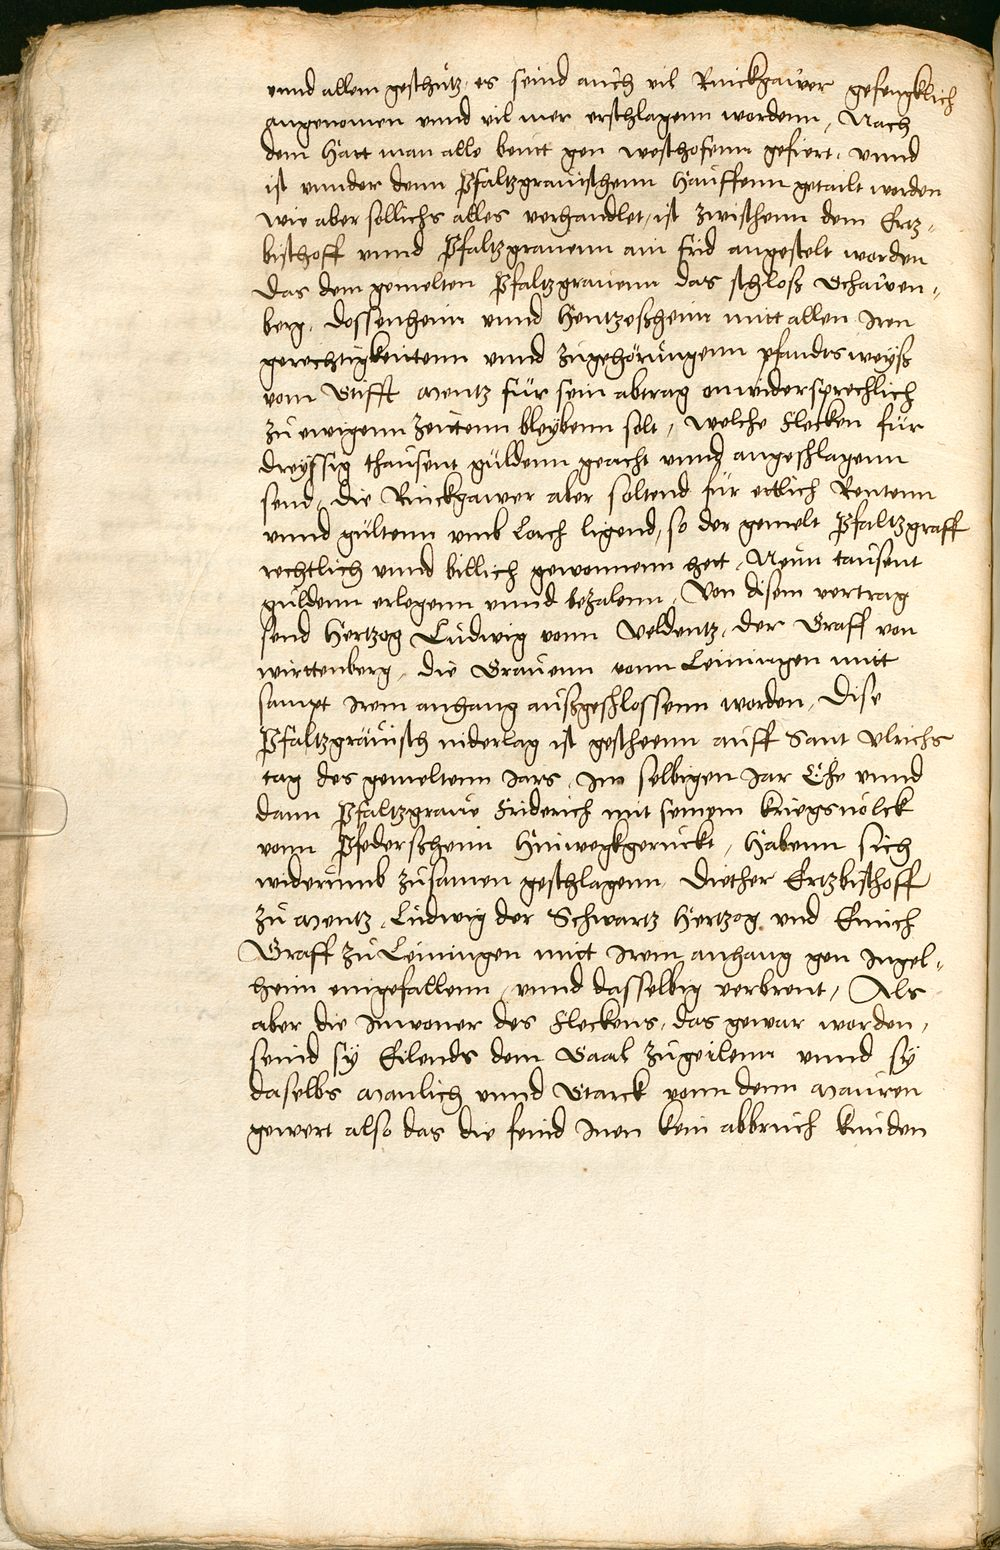 vnnd allem geschütz, es seind auch vil Rinckgawer gefengklich
angenomen vnnd vil mer erschlagenn wordenn, Nach
dem hatt man alle beutt gen westhofenn gefiert, vnnd
ist vnnder denn Pfaltzgrauischenn hauffenn getailt worden
wie aber sollichs alles verhandlet, ist zwischenn dem Ertz-
bischoff vnnd Pfaltzgrauenn ain frid angestelt worden
Das dem gemelten Pfaltzgrauenn das schloß Schawen-
berg, Dossenheim vnnd Hentzeßheim mitt allen Iren
gerechtigkeitenn vnnd zugehörungenn pfandts weyß
vom Stifft Mentz für sein abtrag onwidersprechlich
zu ewigenn zeittenn bleybenn solt, welche Flecken für
dreyssig thausent guldenn geacht vnnd angeschlagenn
send, die Rinckgawer aber soltend für ettlich Rentenn
vnnd gültenn vmb Lorch ligend, so der gemelt Pfaltzgraff
rechtlich vnnd billich gewonnenn hett, Neun tausent
guldenn erlegenn vnnd bezalenn, Von disem vertrag
send Hertzog Ludwig vonn Veldentz, der Graff von
wirttenberg, die Grauenn vonn Leiningen mitt
sampt Irem anhang außgeschlossenn worden, Dise
Pfaltzgräuisch niderlag ist gescheenn auff Sant Vlrichs
tag des gemeltenn Jars, Im selbigen Jar Ehe vnnd
dann Pfaltzgraue Friderich mit seinem kriegsuolck
vonn Pfedersheim hinwegkgeruckt, habenn sich
widerumb zusamen geschlagenn, Diether Ertzbischoff
zu Mentz, Ludwig der Schwartz Hertzog, vnd Emich
Graff zu Leiningen mitt Irem anhang gen Ingel-
heim eingefallenn, vnnd dasselbig verbrent, Als
aber die Inwoner des Fleckens, das gewar worden,
seind sy Eilends dem Saal zugeilenn vnnd sy
daselbs Manlich vnnd Starck vonn denn Mauren
gewert also das die feind Inen kein abbruch kunden